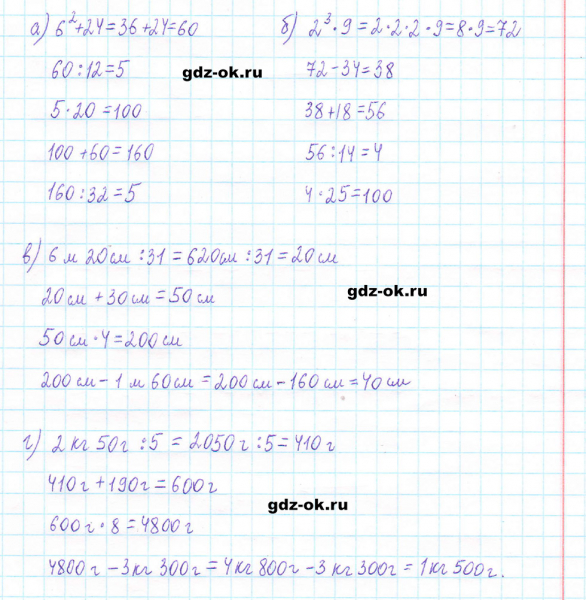 а) 6²+24=36+24=60
60:12=5
5·20=100
100+60=160
160:32=5
б) 2³·9=2·2·2·9=8·9=72
72-34=38
38+18=56
56:14=4
4·25=100
gdz-ok.ru
в) 6 м 20см :31=620см :31=20см
20см+30см=50см
gdz-ok.ru
50см·4=200см
200см-1 м 60см=200см-160см=40см
г) 2 кг 50г :5 = 2050г :5=410г
410г+190г=600г
gdz-ok.ru
600г·8=4800г
4800г-3кг 300г=4кг 800г-3 кг 300г=1кг 500г.